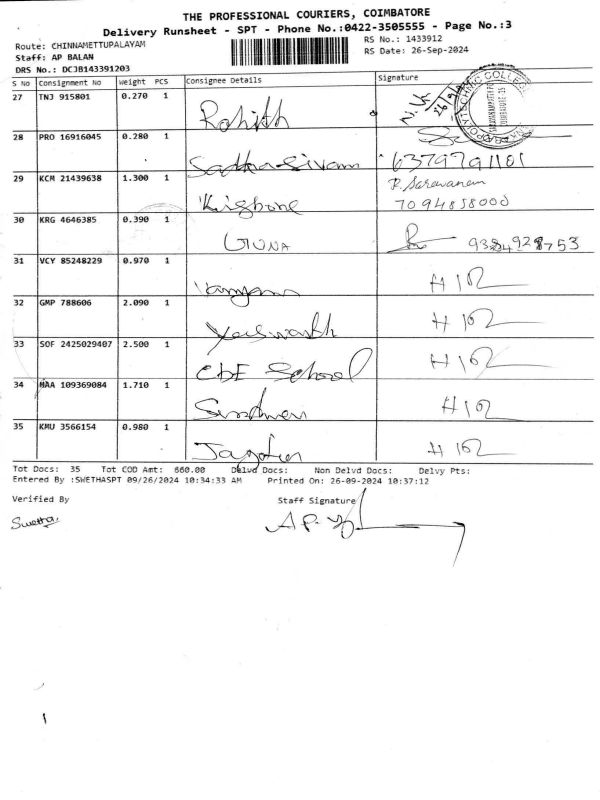 THE PROFESSIONAL COURIERS, COIMBATORE
Delivery Runsheet - SPT - Phone No.:0422-3505555 - Page No.:3
Route: CHINNAMETTUPALAYAM RS No.: 1433912
Staff: AP BALAN RS Date: 26-Sep-2024
DRS No.: DCJB143391203
S No Consignment No Weight PCS Consignee Details Signature
27 TNJ 915801 0.270 1 Rohith
28 PRO 16916045 0.280 1 Sadha Sivam 6379791101
29 KCM 21439638 1.300 1 R. Saravanan
7094858000
30 KRG 4646385 0.390 1 GUNA
31 VCY 85248229 0.970 1 H102
32 GMP 788606 2.090 1 Yaswanth H102
33 SOF 2425029407 2.500 1 CBE School H102
34 MAA 109369084 1.710 1 H102
35 KMU 3566154 0.980 1 H102
Tot Docs: 35 Tot COD Amt: 660.00 Delvd Docs: Non Delvd Docs: Delvy Pts:
Entered By :SWETHASPT 09/26/2024 10:34:33 AM Printed On: 26-09-2024 10:37:12
Verified By Staff Signature
Swetha. A P.